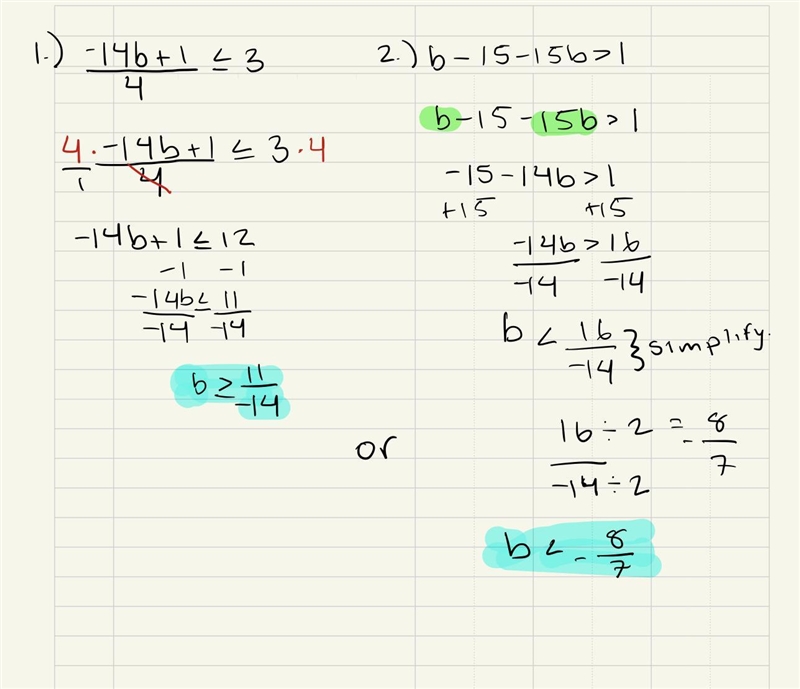 1.) -14b+1/4 ≤ 3
4/1 · -14b+1/4 ≤ 3 · 4
-14b+1 ≤ 12
-1 -1
-14b/-14 ≤ 11/-14
b ≥ 11/-14
or
2.) b-15-15b>1
b-15-15b>1
-15-14b>1
+15 +15
-14b/-14 > 16/-14
b < 16/-14 } simplify.
16÷2/-14÷2 = -8/7
b < -8/7